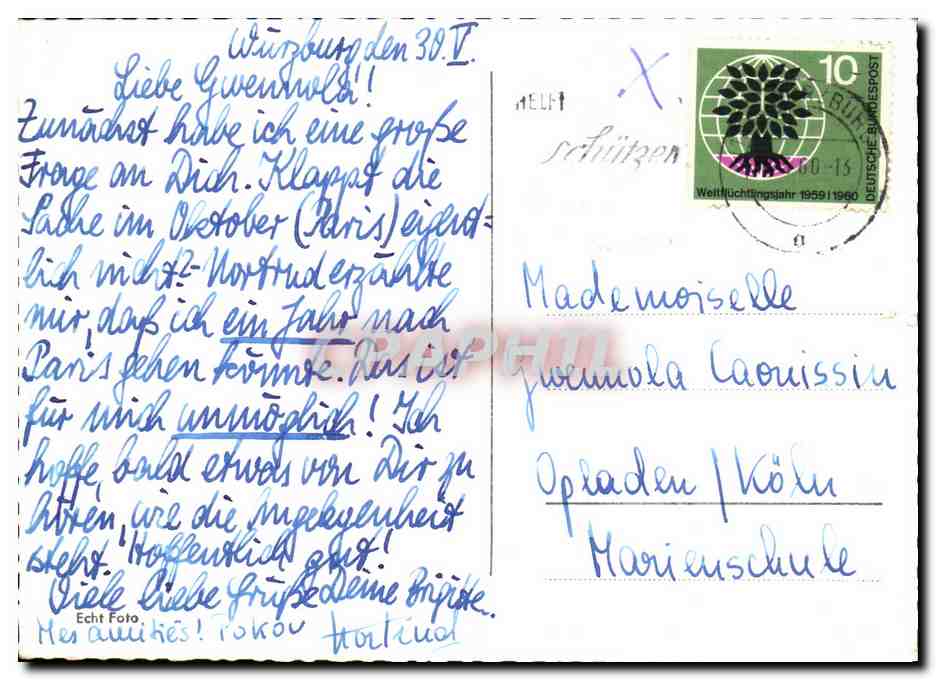 Würzburg den 30.V.
Liebe Gwennola!!
Zunächst habe ich eine große
Frage an Dich. Klappt die
Sache im Oktober (Paris) eigent=
lich nicht? - Nortrud erzählte
mir, daß ich ein Jahr nach
Paris gehen könnte. Das ist
für mich unmöglich! Ich
hoffe, bald etwas von Dir zu
hören, wie die Angelegenheit
steht. Hoffentlich gut!
Viele liebe Grüße Deine Brigitte.
Echt Foto
Mes amitiés!
X.
HELFT
schützen
10
DEUTSCHE BUNDESPOST
Weltflüchtlingsjahr 1959 | 1960
60-13
a
Mademoiselle
Gwennola Caouissin
Opladen / Köln
Marienschule
CPAPHIL